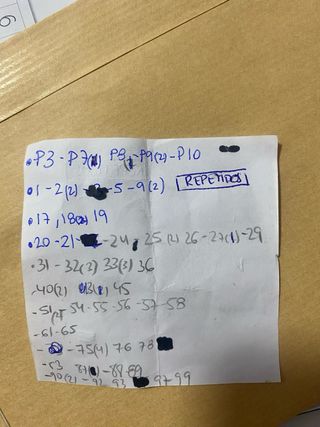 6
•P3 - P7(1) P8, - P9(2) - P10
•1 - 2(2) - - 5 - 9(2) REPETIDOS
•17, 18(2) 19
•20 - 21 - - 24, 25(2) 26 - 27(1) - 29
•31 - 32(2) 33(3) 36
.40(2) 43(1), 45
- 51(2) 54 - 55 - 56 - 57 - 58
- 61 - 65
- - 75(4) 76 78
- 53 87 - 88 89
- 90(2) - 92 93 97 - 99